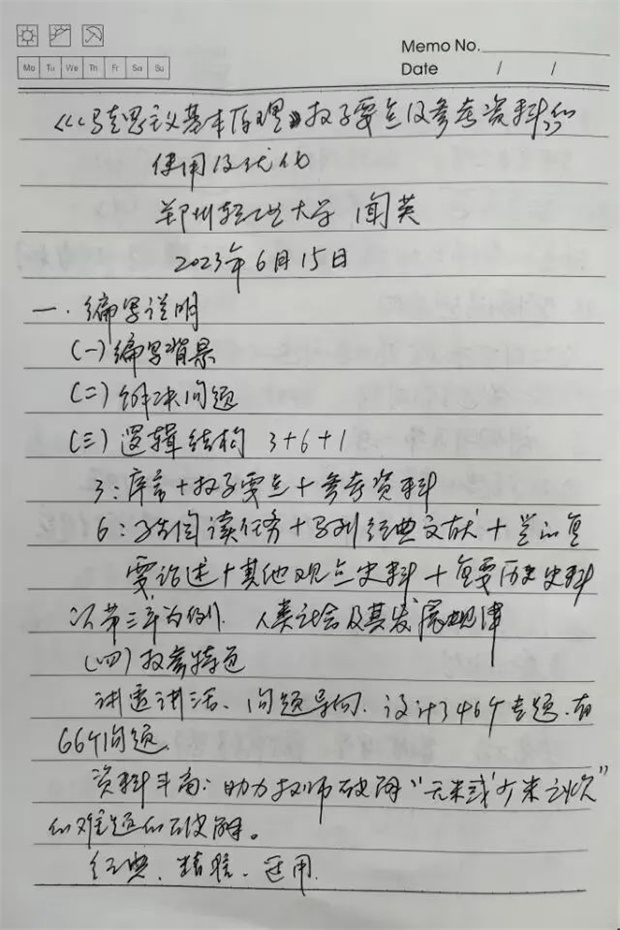 Memo No.
Mo Tu We Th Fr Sa Su
Date / /
《《马克思主义基本原理》教学要点及参考资料》的
使用及优化
郑州轻工业大学 闻英
2023年6月15日
一.编写说明
(一)编写背景
(二)解决问题
(三)逻辑结构 3+6+1
3:序言+教学要点+参考资料
6: 阅读任务+马列经典文献+党的重
要论述+其他观点史料+重要历史史料
以第三章为例. 人类社会及其发展规律
(四)教参特色
讲透讲活、问题导向.设计了46个专题.有
66个问题.
资料丰富:助力教师破解“无米或少米之炊”
的难题的破解。
经典、精准、适用.